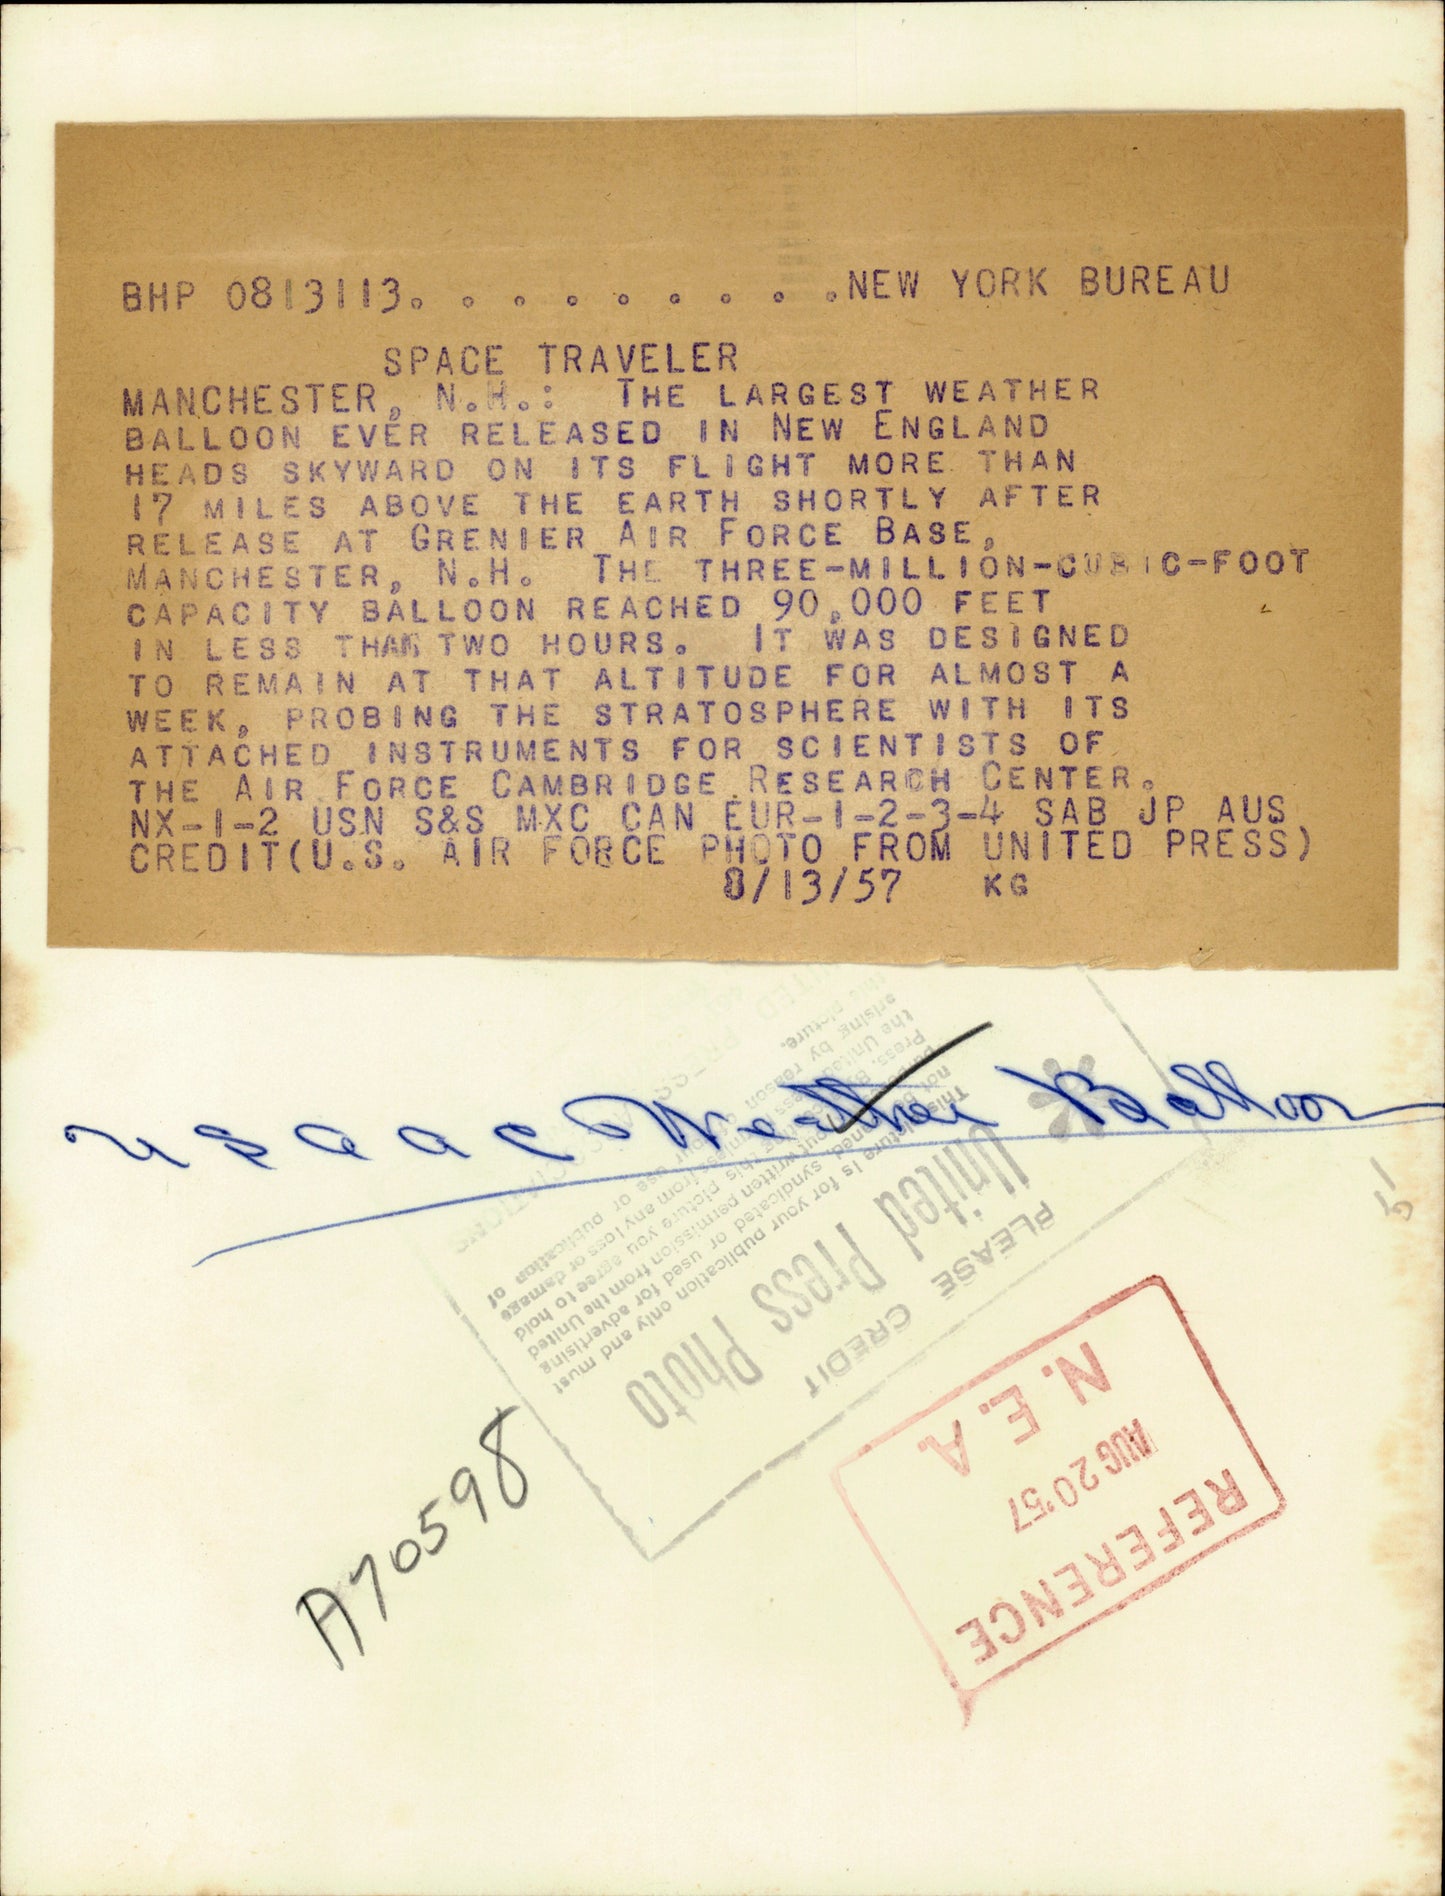 BHP 0813113. . . . . . . . .NEW YORK BUREAU
SPACE TRAVELER
MANCHESTER, N.H.: THE LARGEST WEATHER
BALLOON EVER RELEASED IN NEW ENGLAND
HEADS SKYWARD ON ITS FLIGHT MORE THAN
17 MILES ABOVE THE EARTH SHORTLY AFTER
RELEASE AT GRENIER AIR FORCE BASE,
MANCHESTER, N.H. THE THREE-MILLION-CUBIC-FOOT
CAPACITY BALLOON REACHED 90,000 FEET
IN LESS THAN TWO HOURS. IT WAS DESIGNED
TO REMAIN AT THAT ALTITUDE FOR ALMOST A
WEEK, PROBING THE STRATOSPHERE WITH ITS
ATTACHED INSTRUMENTS FOR SCIENTISTS OF
THE AIR FORCE CAMBRIDGE RESEARCH CENTER.
NX-1-2 USN S&S MXC CAN EUR-1-2-3-4 SAB JP AUS
CREDIT(U.S. AIR FORCE PHOTO FROM UNITED PRESS)
8/13/57 KG
Weather Balloon
PLEASE CREDIT
United Press Photo
This picture is for your publication only and must
not be loaned, syndicated or used for advertising
written permission from the United
this picture you agree to hold
the United Press from any loss or damage
arising by reason of your use or publication of
this picture.
A70598
REFERENCE
AUG 20'57
N. E. A.